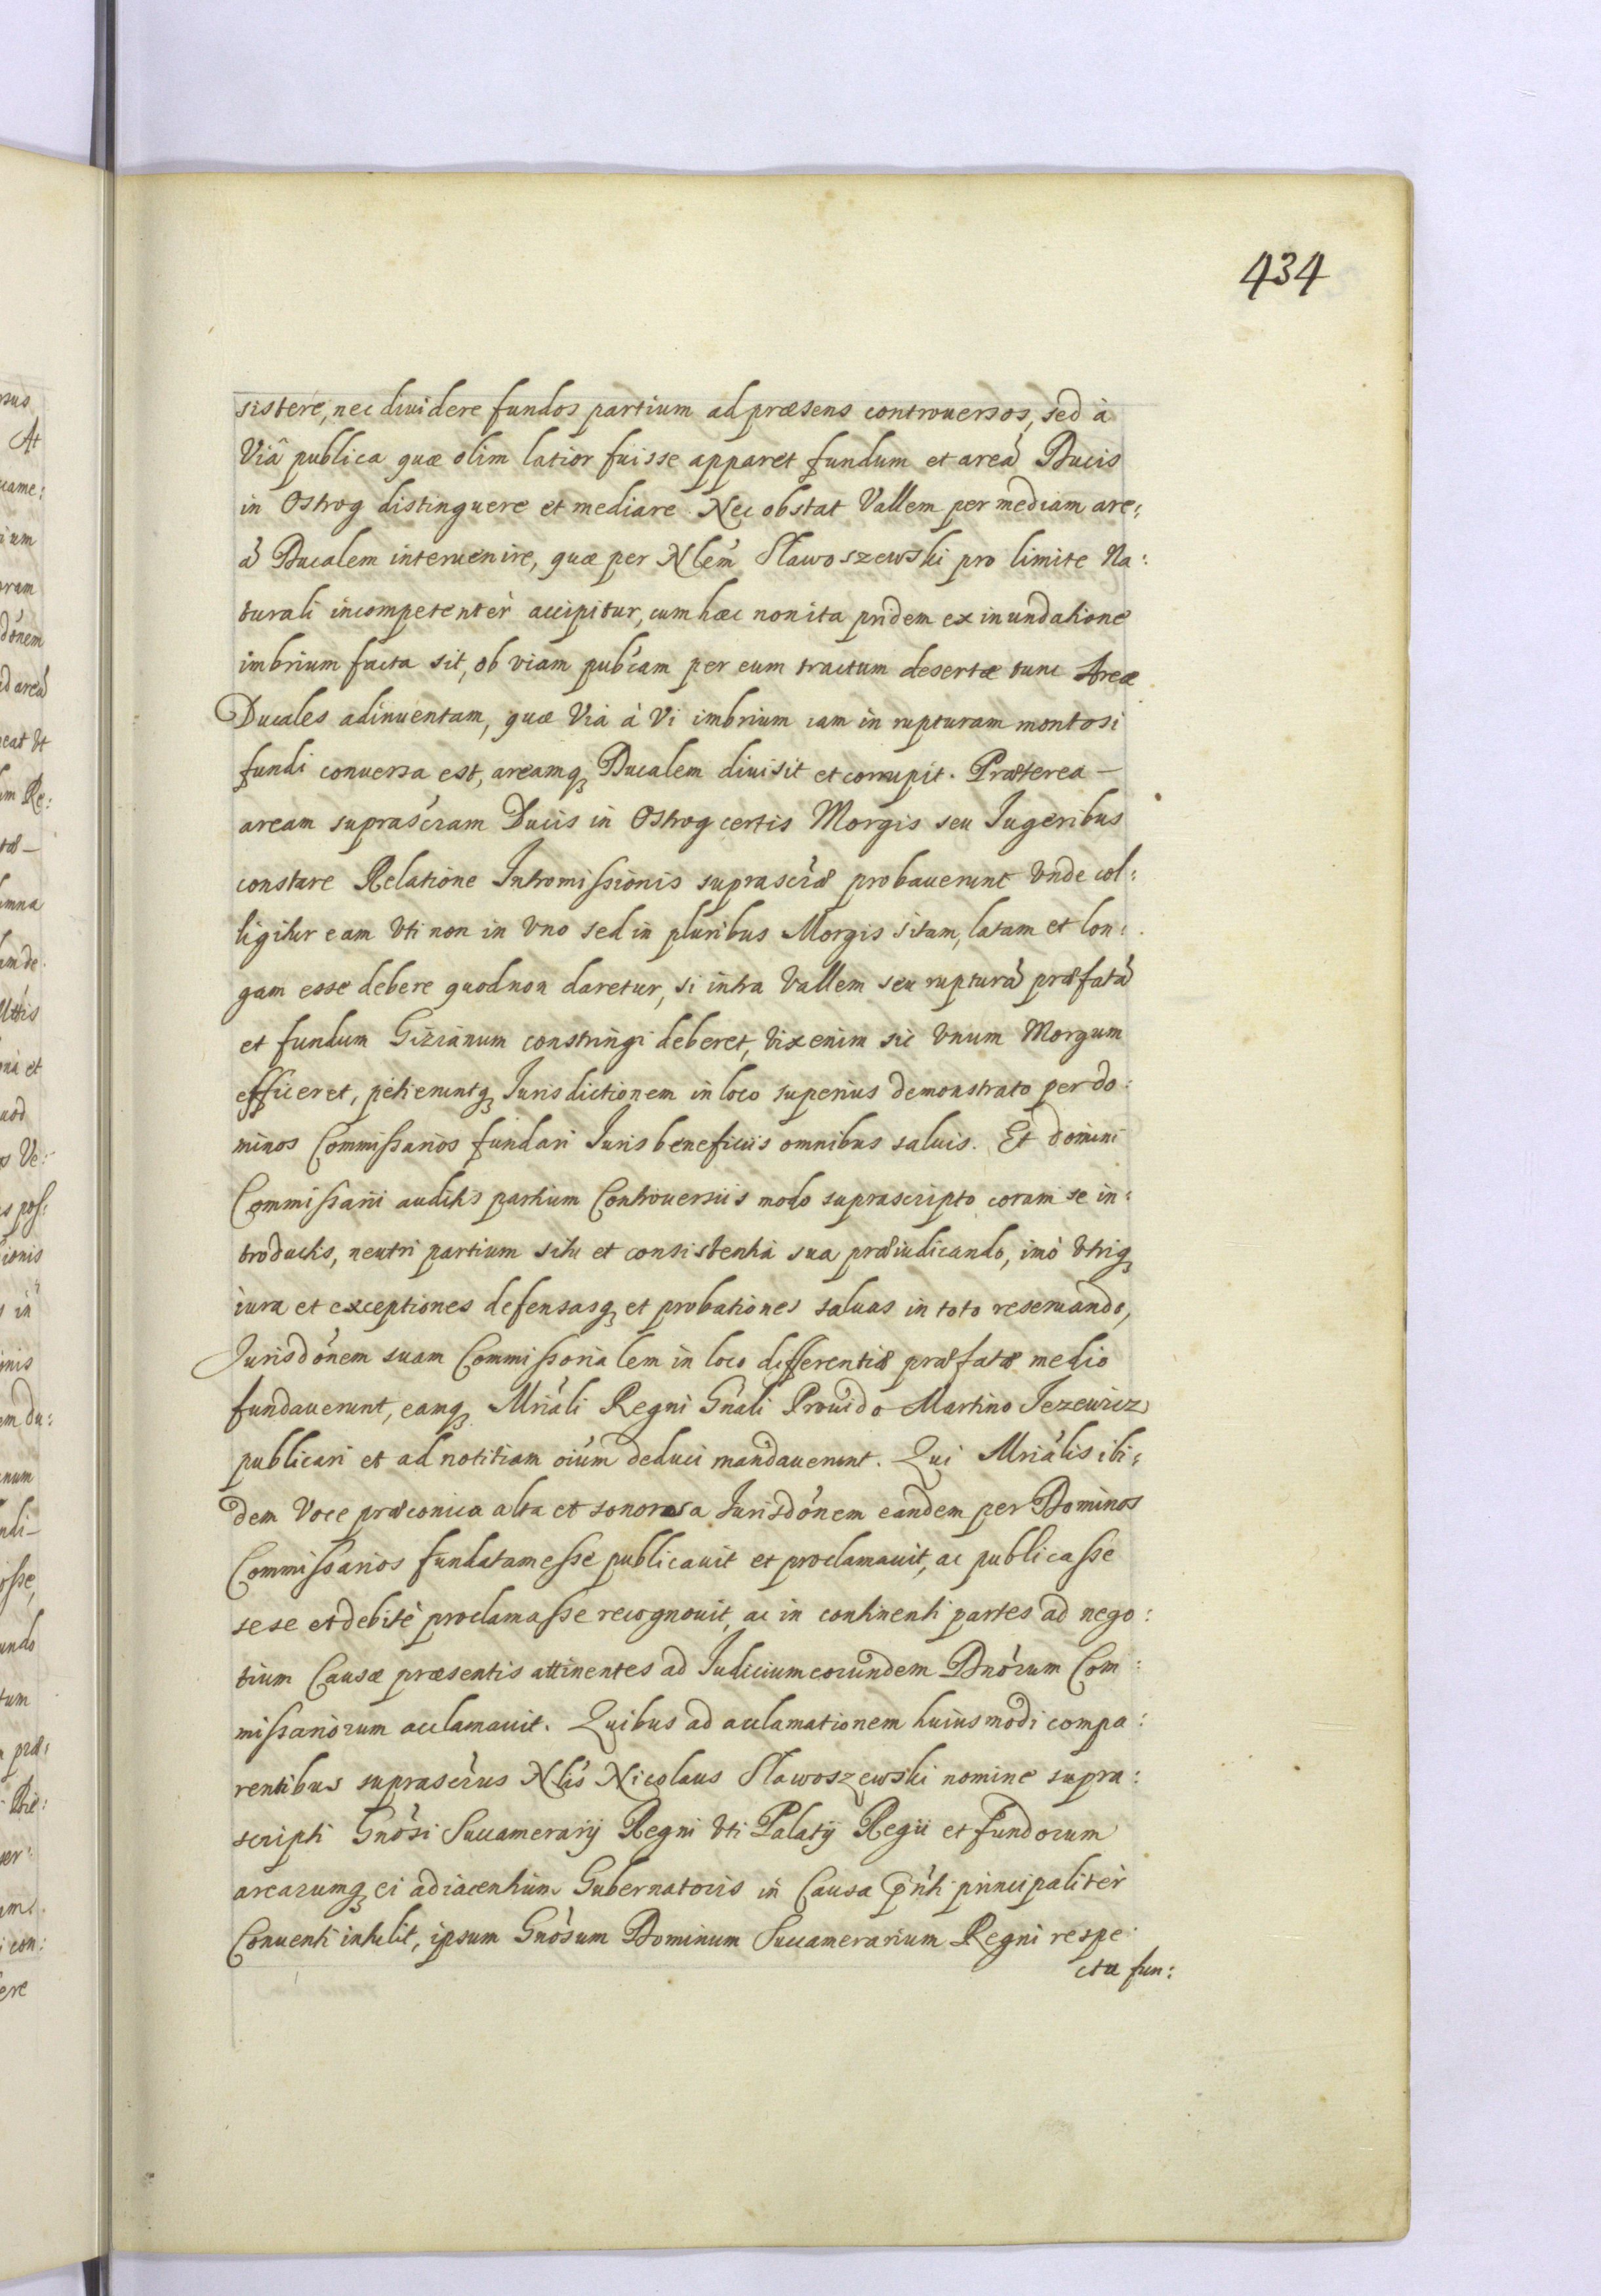 434
sistere, nec diuidere fundos partium ad præsens controuersos, sed à
Viâ publica quæ olim latior fuisse apparet fundum et areã Ducis
in Ostrog distinguere et mediare. Nec obstat Vallem per mediam are:
ã Ducalem interuenire, quæ per Nlem̃ Sławoszewski pro limite Na:
turali incompetentèr accipitur, cum hæc non ita pridem ex inundatione
imbrium facta sit, ob viam pub̃cam per eum tractum desertæ tunc Areæ
Ducales adinuentam, quæ Via à Vi imbrium iam in rupturam montosi
fundi conuersa est, areamq̨ Ducalem diuisit et corrupit. Præterea —
aream suprasc̃ram Ducis in Ostrog certis Morgis seu Jugeribus
constare Relatione Intromißionis suprascr̃æ probauerunt Vnde col:
ligitur eam Vti non in Vno sed in pluribus Morgis sitam, latam et lon:
gam esse debere quod non daretur, si intra Vallem seu rupturã præfatã
et fundum Gizianum constringi deberet, Vix enim sic Vnum Morgum
efficeret, petieruntq̨ Jurisdictionem in loco superius demonstrato per do:
minos Commißarios fundari Juris beneficiis omnibus saluis. Et domini
Commißarii auditis partium Controuersiis modo suprascripto coram se in:
troductis, neutri partium situ et consistentia sua præiudicando, imò Vtriq̨
iura et exceptiones defensasq̨ et probationes saluas in toto reseruando,
Jurisdõnem suam Commißorialem in loco differentiæ præfatæ medio
fundauerunt, eamq̨ Mriãli Regni Gnãli Prouido Martino Jezewicz
publicari et ad notitiam oĩum deduci mandauerunt. Qui Mriãlis ibi:
dem Voce præconica alta et sonorosa Jurisdõnem eandem per Dominos
Commißarios fundatam eße publicauit et proclamauit, ac publicaße
sese et debitè proclamaße recognouit, ac in continenti partes ad nego:
tium Causæ præsentis attinentes ad Judicium eorundem Dnõrum Com:
mißariorum acclamauit. Quibus ad acclamationem huiusmodi compa:
rentibus suprascr̃us Nlis̃ Nicolaus Sławoszewski nomine supra:
scripti Gnõsi Succamerarij Regni Vti Palatij Regii et fundorum
arearumq̨ ei adiacentium Gubernatoris in Causa pñti principalitèr
Conuenti intulit, ipsum Gnõsum Dominum Succamerarium Regni respe:
ctu fun: